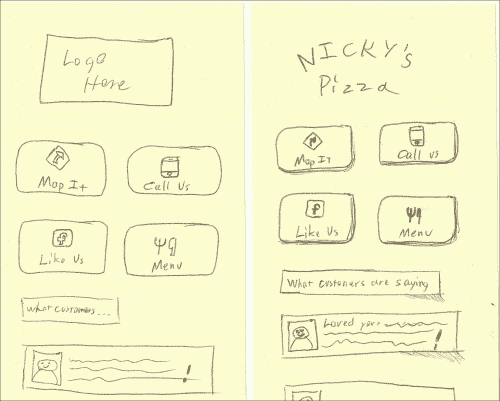 Logo
Here
Map It
Call Us
Like Us
Menu
What customers...
NICKY's
Pizza
Map It
Call us
Like Us
Menu
What customers are saying
Loved your